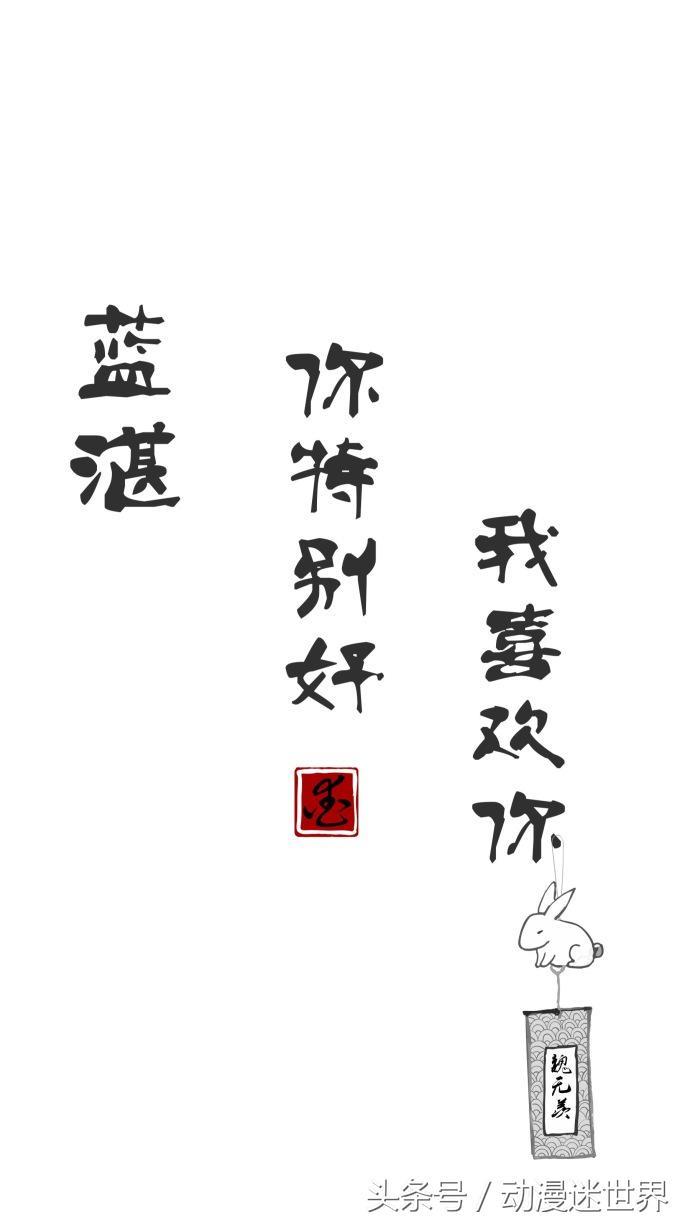 蓝湛
你特别好
我喜欢你
魏无羡
头条号 / 动漫迷世界